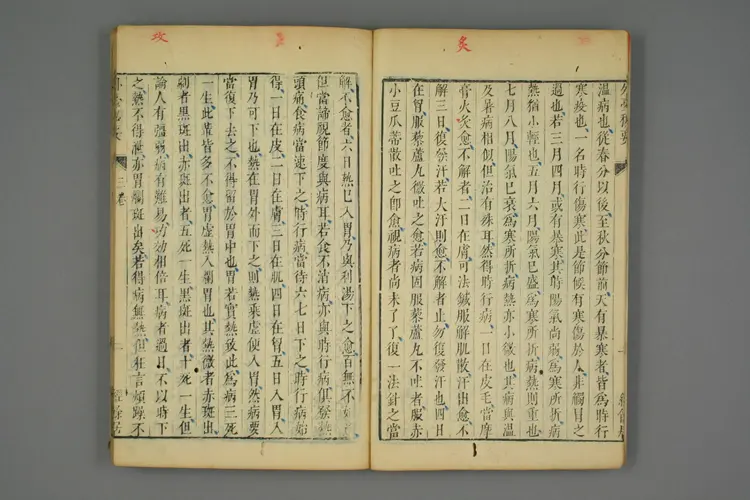 炙
外臺秘要
溫病也從春分以後至秋分節前天有暴寒者皆為時行
寒疫也一名時行傷寒此是節候有寒傷於人非觸冒之
過也若三月四月或有暴寒其時陽氣尚弱為寒所折病
熱猶小輕也五月六月陽氣已盛為寒所折病熱則重也
七月八月陽氣已衰為寒所折病熱亦小微也其病與溫
及暑病相似但治有殊耳然得時行病一日在皮毛當摩
膏火灸愈不解者二日在膚可法鍼服解肌散汗出愈不
解三日復發汗若大汗則愈不解者止勿復發汗也四日
在胃服藜蘆丸微吐之愈若病固服藜蘆丸不吐者服赤
小豆瓜蔕散吐之即愈視病者尚未了了復一法針之當
解不愈者六日熱已入胃乃與利湯下之愈百無不
但當諦視節度與病耳若食不消病亦與時行病俱發熱
頭痛食病當速下之時行病當待六七日下之時行病始
得一日在皮二日在膚三日在肌四日在胷五日入胃入
胃乃可下也熱在胃外而下之則熱乘虛便入胃然病要
當復下去之不得留於胃中也胃若實熱致此為病三死
一生此輩皆多不愈胃虛熱入爛胃也其熱微者赤斑出
劇者黑斑出赤斑出者五死一生黑斑出者十死一生但
論人有強弱病有難易功效相倍耳病者過日不以時下
之熱不得泄亦胃爛斑出矣若得病無熱但狂言煩躁不
三卷